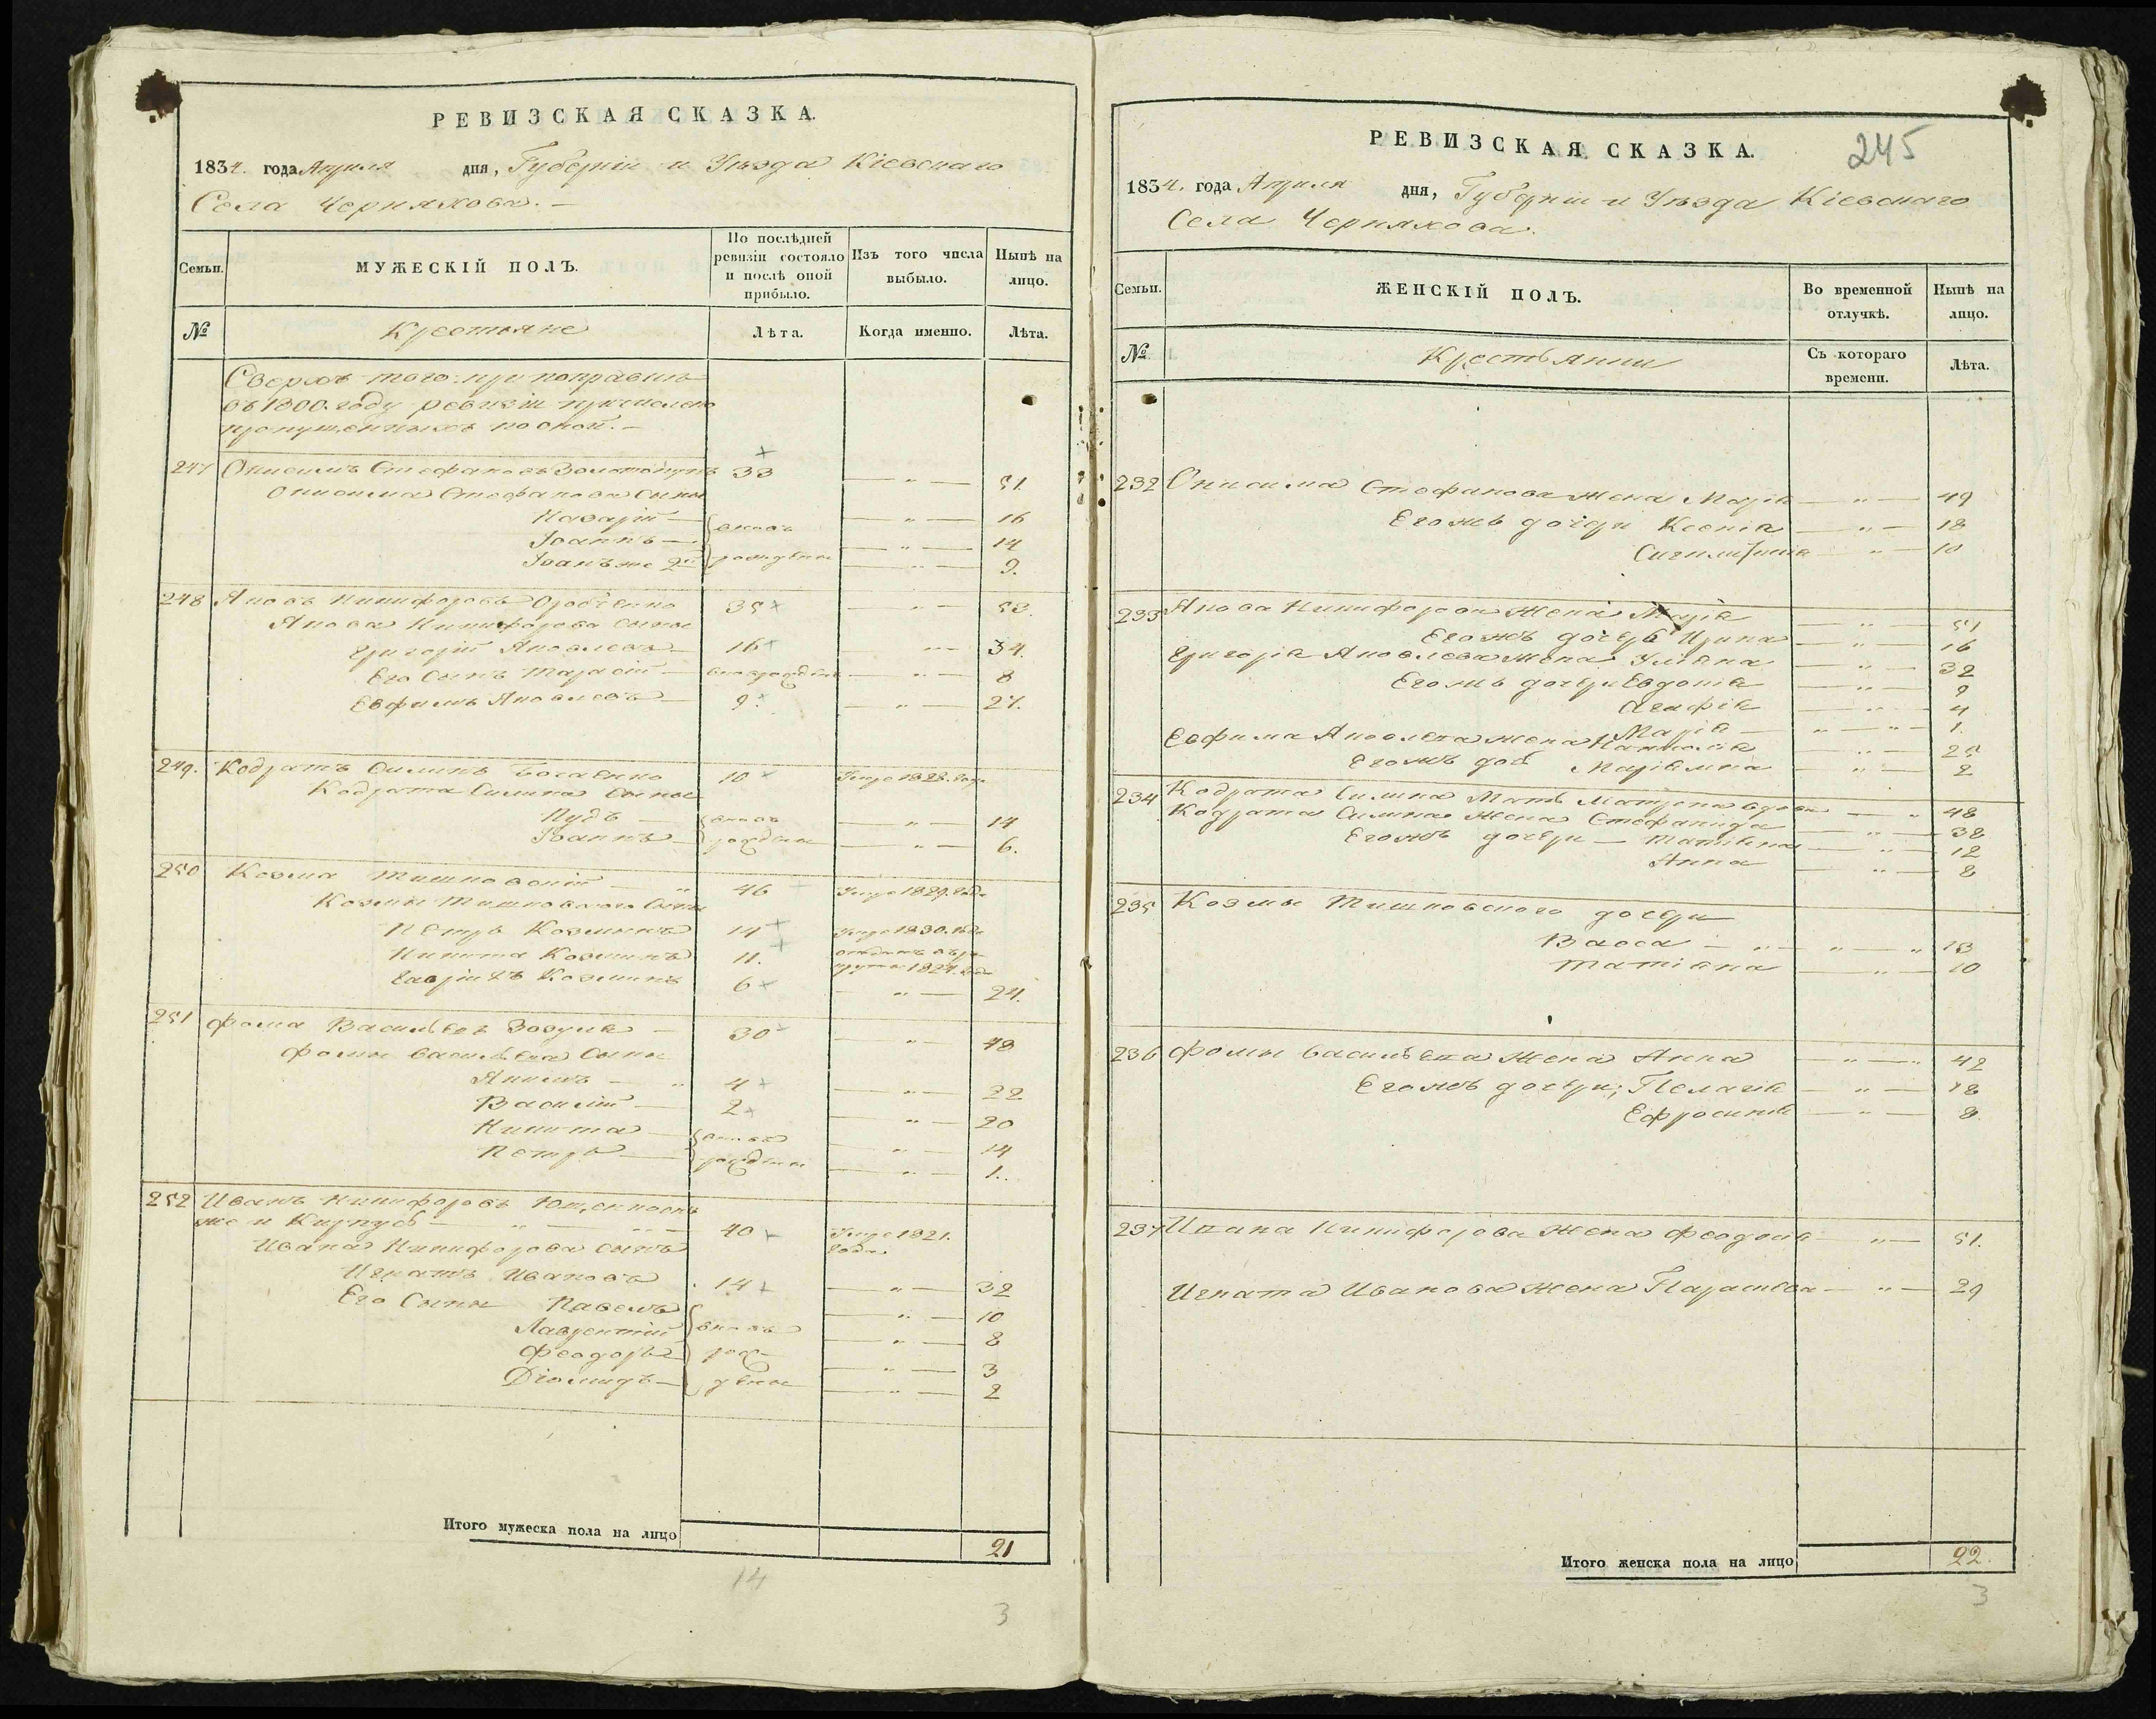 РЕВИЗСКАЯ СКАЗКА.
1834. года Апреля дня, Губерніи и Уѣзда Кіевскаго
Села Чернякова.
Семьи.
МУЖЕСКІЙ ПОЛЪ.
По послѣдней ревизіи состояло и послѣ оной прибыло.
Изъ того числа выбыло.
Нынѣ на лицо.
№
Крестьяне
Лѣта.
Когда именно.
Лѣта.
Сверхъ того при
въ 1800. году ревизіи причислено
пропущенныхъ по оной.
247 Онисимъ Стефановъ 33 — " — 51.
Онисима Стефанова Сыны
Назарій — вновь — " — 16
Іоаннъ — рождены — " — 14
Іоанъ же 2й — " — 9.
248 Яковъ Никифоровъ 35 — " — 53.
Якова Никифорова Сыны
Григорій Яковлевъ 16 — " — 34.
Его Сынъ Тарасій — вновь рожденъ — " — 8
Евфимъ Яковлевъ — 9. — " — 27.
249. Кодратъ Силинъ 10 Умре 1828. года
Кодрата Силина Сыны
Пудъ — вновь — " — 14
Іоаннъ — рождены — " — 6.
250 Козма Тишковскій — " 46 Умре 1829. года
Козмы Тишковскаго Сыны
Петръ Козминъ 14 Умре 1830. года
Никита Козминъ 11. отданъ въ рекруты 1827. года
Гавріилъ Козминъ 6 — " — 24.
251 Фома Васильевъ Зозуля — 30 — " — 48
Фомы Васильева Сыны
Якимъ — " 4 — " — 22
Василій — 2 — " — 20
Никита — вновь — " — 14
Петръ — рождены — " — 1.
252 Иванъ Никифоровъ
же и 40 Умре 1821. года
Ивана Никифорова сынъ
Игнатъ Ивановъ 14 — " — 32
Его Сыны Павелъ — " — 10
Лаврентій вновь — " — 8
Феодоръ рож — " — 3
Діомидъ — дены — " — 2
Итого мужеска пола на лицо 21
14
3
245
РЕВИЗСКАЯ СКАЗКА.
1834. года Апреля дня, Губерніи и Уѣзда Кіевскаго
Села Чернякова.
Семьи.
ЖЕНСКІЙ ПОЛЪ.
Во временной отлучкѣ.
Нынѣ на лицо.
№
Крестьянки
Съ котораго времени.
Лѣта.
232 Онисима Стефанова жена Марія — " — 49
Его жъ дочери Ксенія — " — 18
— " — 10
233 Якова Никифорова Жена Марія — " — 51
Его жъ дочерь Ирина — " — 16
Григорія Яковлева Жена Уліяна — " — 32
Его жъ дочери Евдокія — " — 9
Агафія — " — 4
Марія — " — " — 1.
Евфима Яковлева жена Наталія — " — 25
Его жъ доч Маріамна — " — 2
234 Кодрата Силина Мать Матрона вдова — " 48
Кодрата Силина Жена Стефанида — " — 38
Его жъ дочери — Татіяна — " — 12
Анна — " — 8
235 Козмы Тишковскаго дочери
Васса — " — " — " 13
Татіяна — " — 10
236 Фомы Васильева Жена Анна — " — " 42
Его жъ дочери; Пелагія — " — 18
Ефросинія — " — 8
237 Ивана Никифорова Жена Феодосія — " — 51.
Игната Иванова Жена Параскева — " — 29
Итого женска пола на лицо 22.
3